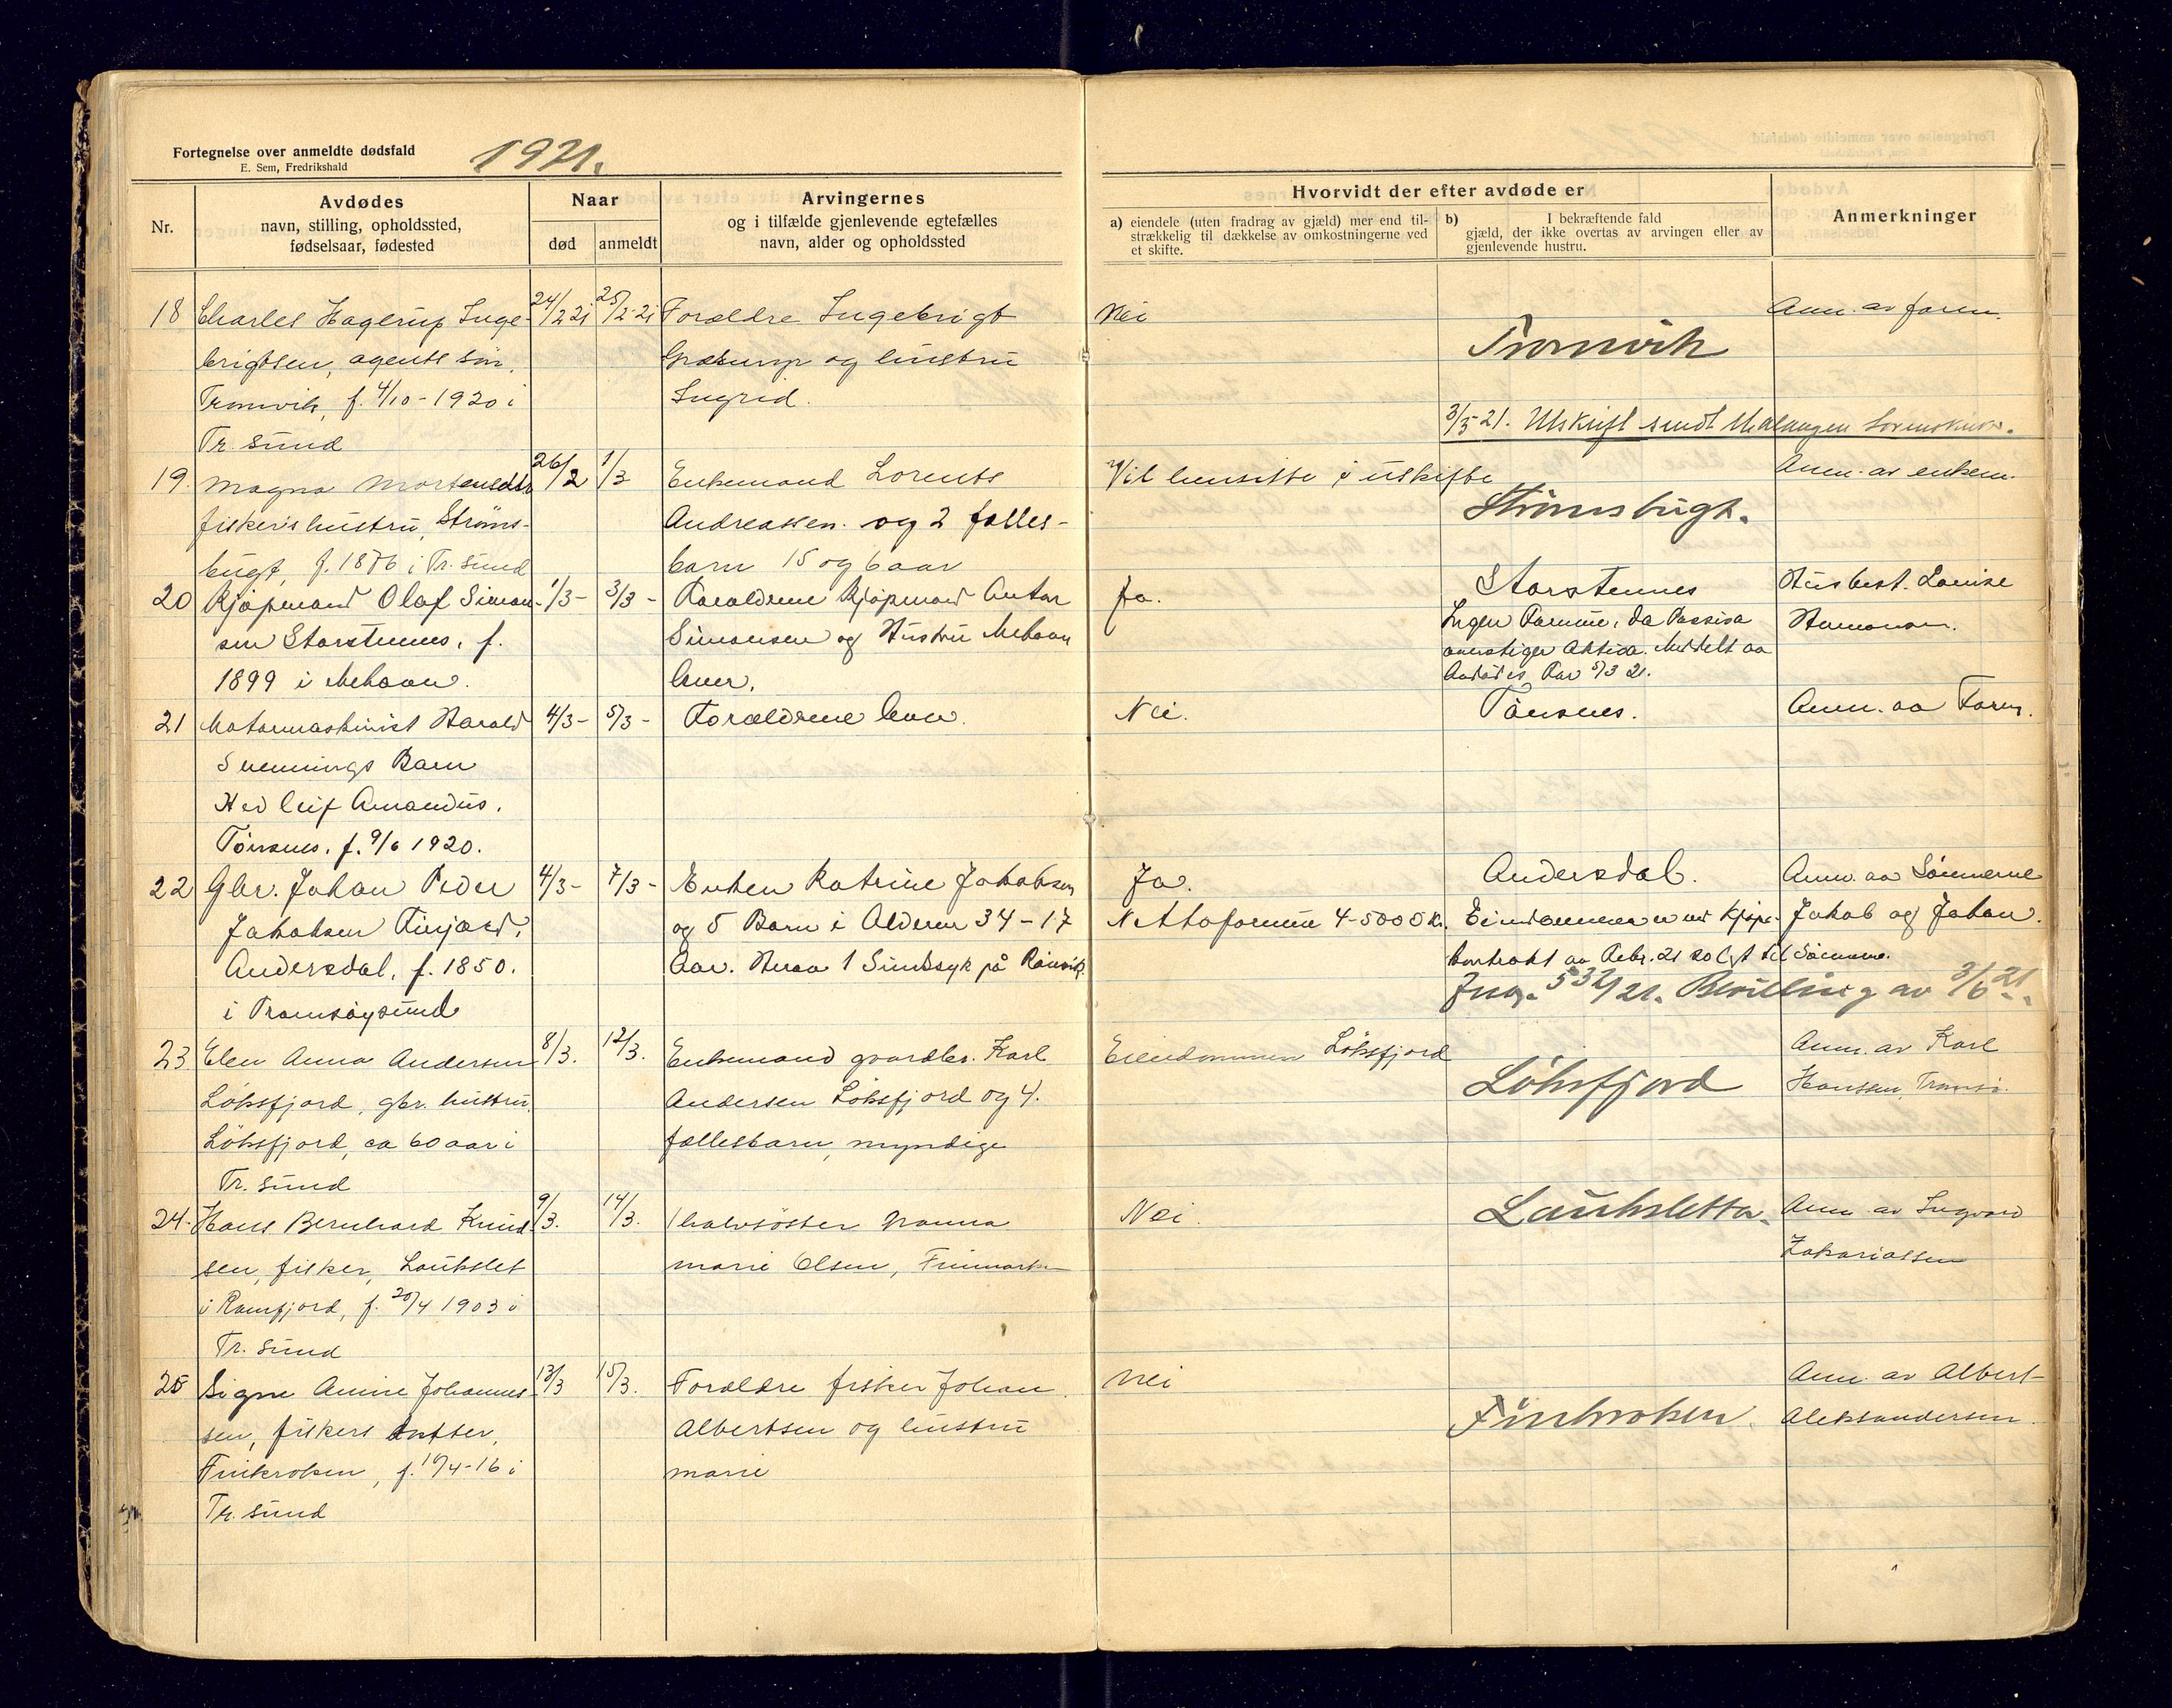 Fortegnelse over anmeldte dødsfald
E. Sem, Fredrikshald
1921.
Nr.
Avdødes
navn, stilling, opholdssted,
fødselsaar, fødested
Naar
død
anmeldt
Arvingernes
og i tilfælde gjenlevende egtefælles
navn, alder og opholdssted
Hvorvidt der efter avdøde er
a) eiendele (uten fradrag av gjæld) mer end til-
strækkelig til dækkelse av omkostningerne ved
et skifte.
b) I bekræftende fald
gjæld, der ikke overtas av arvingen eller av
gjenlevende hustru.
Anmerkninger
18 Charles Hagerup Inge-
brigtsen, agents søn,
Tromvik, f. 4/10-1920 i
Tr. sund
24/2 21
25/2-21
Forældre Ingebrigt
og hustru
Ingrid.
Nei
Tromvik
Anm. av faren.
3/3-21. Utskrift sendt Malangen Sorenskriv.
19. Magna Mortensdtr
fiskers hustru, Strøms-
bugt, f. 1876 i Tr. sund
26/2
1/3
Enkemand Lorents
Andreassen og 2 fælles-
barn 15 og 6 aar
Vil hensitte i uskifte
Strømsbugt.
Anm. av enkem.
20 Kjøpmand Olaf Simon-
sen Storstennes, f.
1899 i Mehavn.
1/3-
3/3-
Forældrene Kjøpmand Anton
Simonsen og Hustru Mehavn
lever.
Ja.
Storstennes
Ingen Formue, da Passiva
overstiger Aktiva. Meddelt av
Avdødes Far 5/3 21.
Husbest. Louise
21 Motormaskinist Harald
Svennings Barn
Hedleif Amandus.
Tønsnes. f. 9/6 1920.
4/3-
5/3-
Forældrene lever.
Nei.
Tønsnes.
Anm. av Faren.
22 Gbr. Johan Peder
Jakobsen
Andersdal, f. 1850.
i Tromsøysund
4/3-
7/3-
Enken Katrine Jakobsen
og 5 Barn i Alderen 34-17
Aar. Herav 1 Sindssyk på Rønvik.
Ja.
Nettoformue 4-5000 Kr.
Andersdal.
Eiendommen er ved Kjøpe-
kontrakt av Febr. 21 solgt til Sønnerne.
Jnr. 532/21. Bevilling av 3/6 21.
Anm. av Sønnerne
Jakob og Johan.
23 Elen Anna Andersen
Løksfjord, gbr. hustru,
Løksfjord, ca 60 aar i
Tr. sund
8/3.
12/3.
Enkemand gaardbr. Karl
Andersen Løksfjord og 4.
fællesbarn, myndige
Eiendommen Løksfjord
Løksfjord
Anm. av Karl
Hanssen, Tromsø.
24. Hans Bernhard Knud-
sen, fisker, Laukslet
i Ramfjord, f. 20/4 1903 i
Tr. sund
9/3.
14/3.
1 halvsøster Nanna
Marie Olsen, Finmarken
Nei.
Laukslетta.
Anm. av Ingvard
Zakariassen
25 Signe Amine Johannes-
sen, fiskers datter,
Finkroken, f. 10/4-16 i
Tr. sund
13/3
15/3.
Forældre fisker Johan
Albertsen og hustru
Marie
Nei
Finkroken.
Anm. av Albert
Aleksandersen